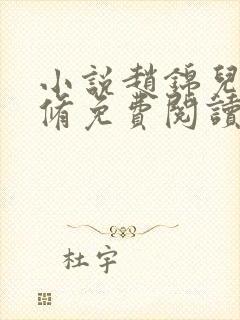 小說趙錦兒
脩免費閱讀
杜宇